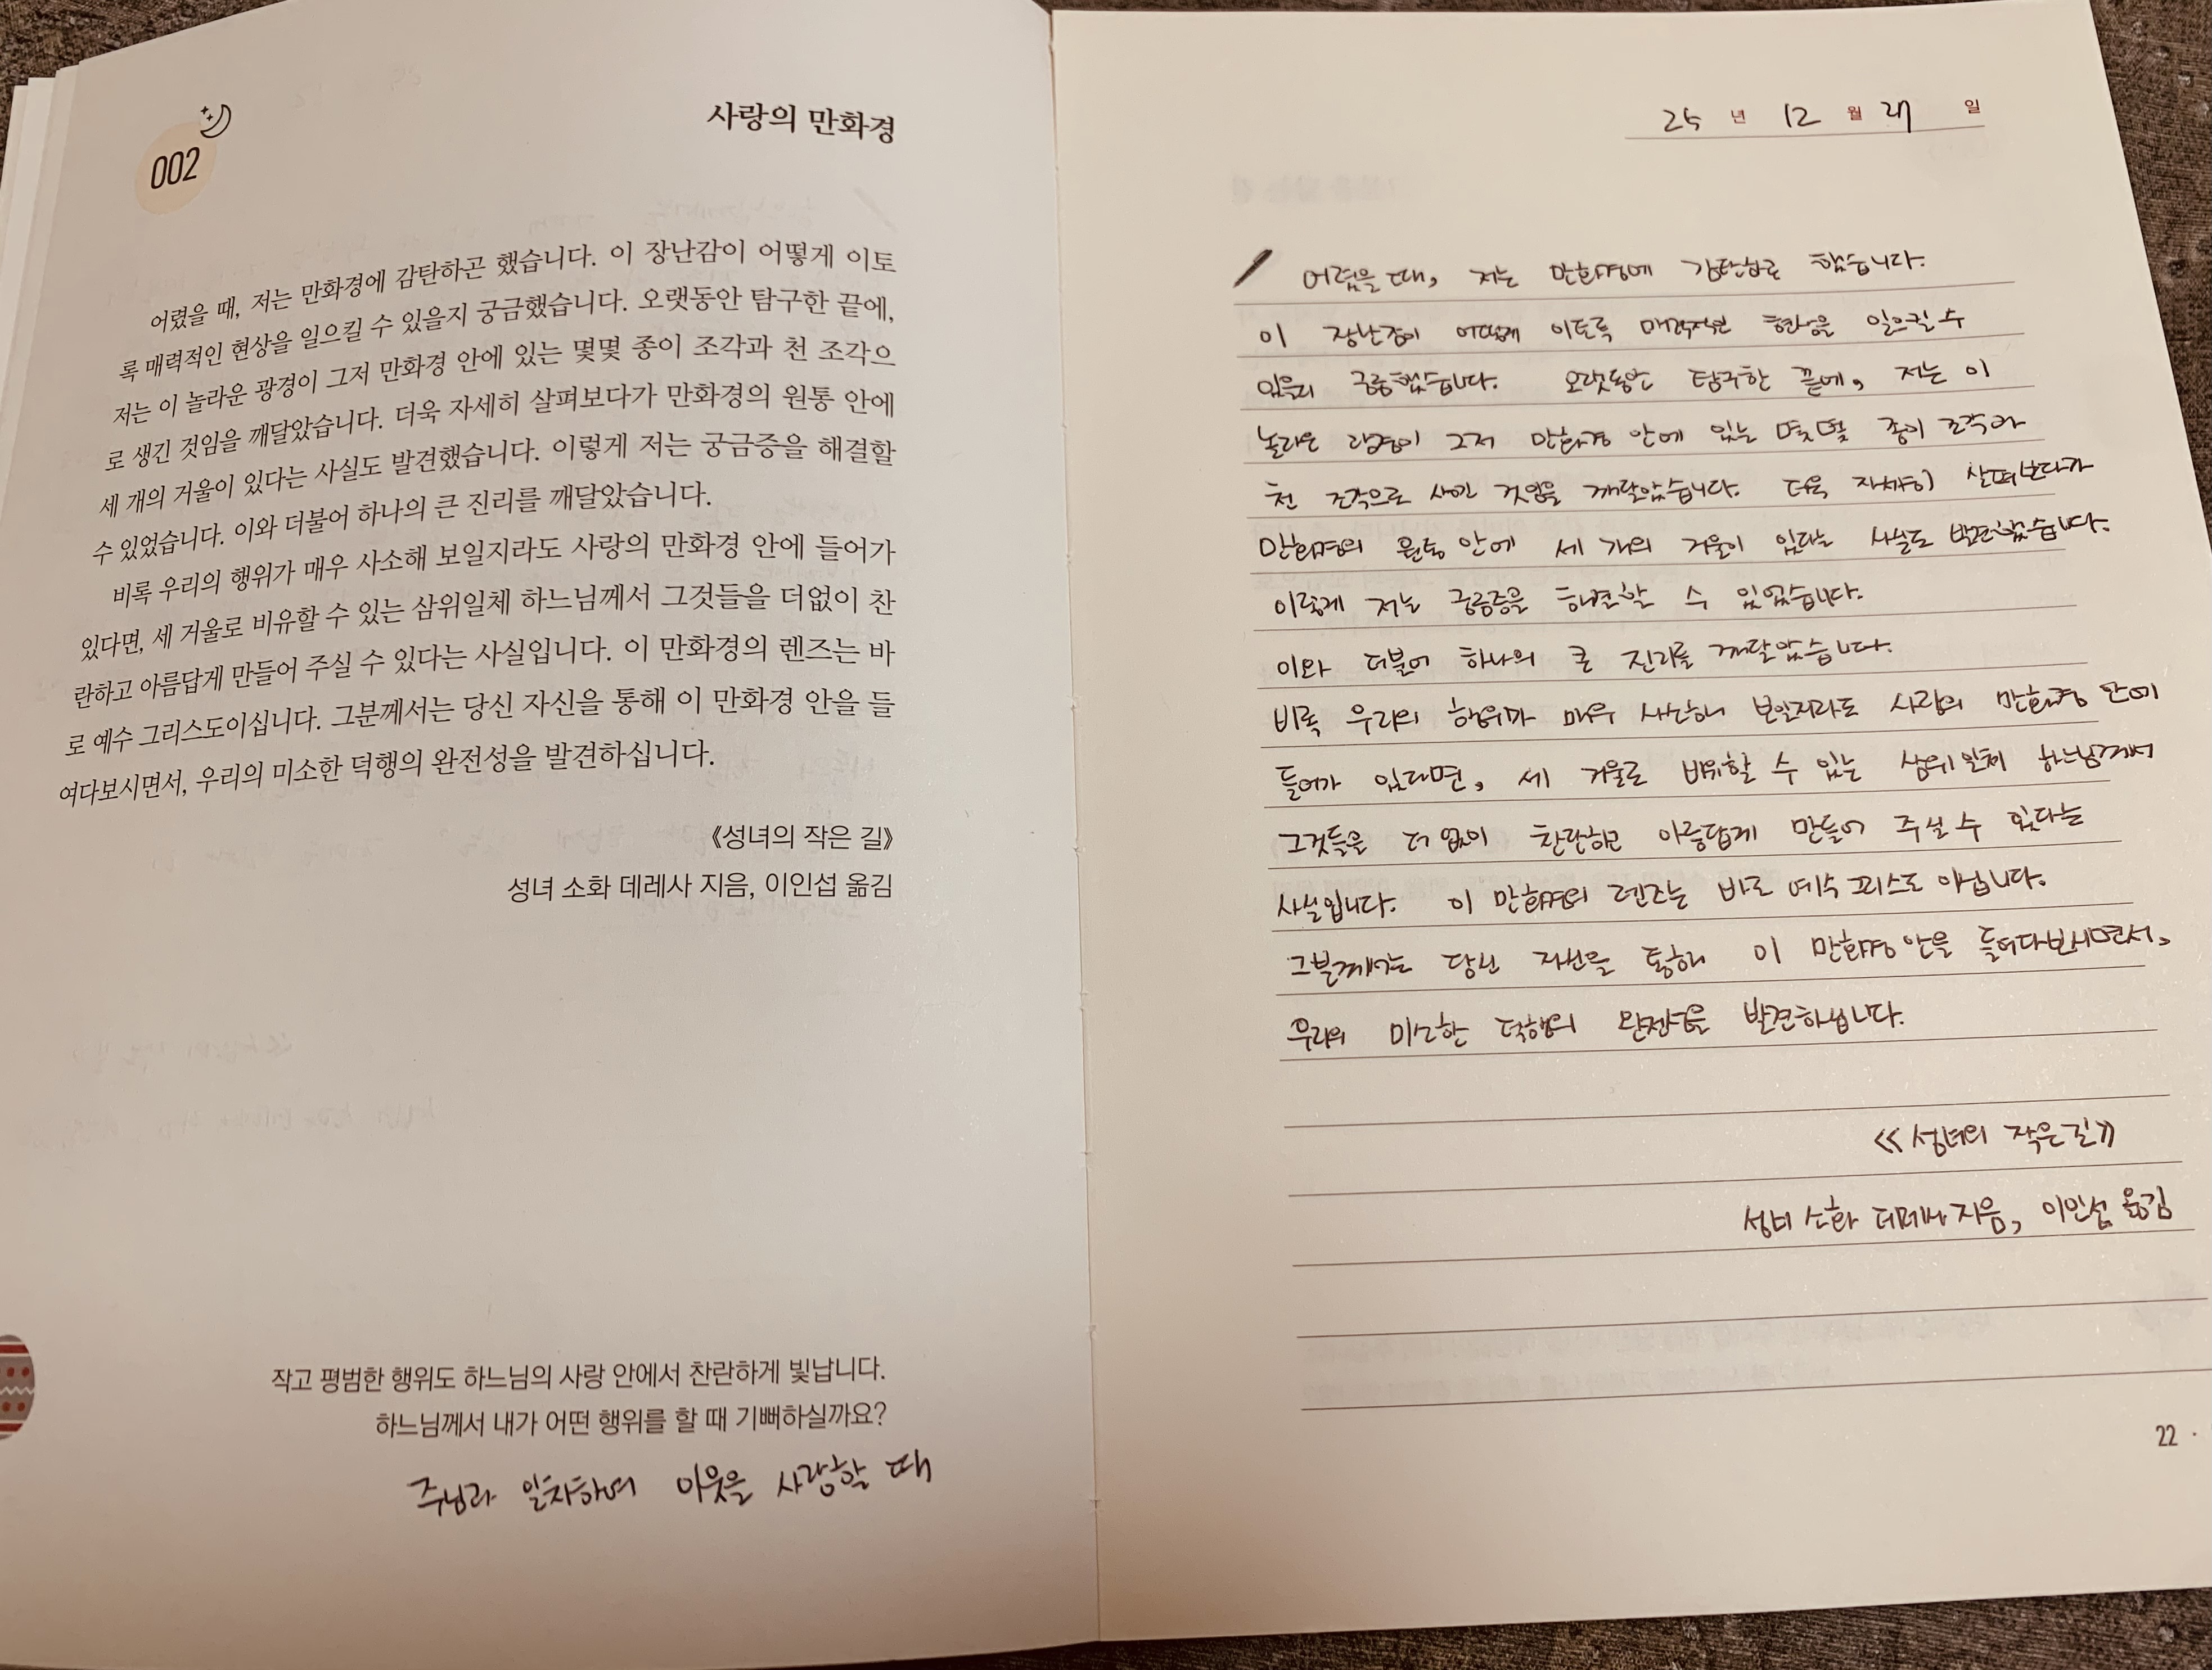 002
사랑의 만화경
어렸을 때, 저는 만화경에 감탄하곤 했습니다. 이 장난감이 어떻게 이토
록 매력적인 현상을 일으킬 수 있을지 궁금했습니다. 오랫동안 탐구한 끝에,
저는 이 놀라운 광경이 그저 만화경 안에 있는 몇몇 종이 조각과 천 조각으
로 생긴 것임을 깨달았습니다. 더욱 자세히 살펴보다가 만화경의 원통 안에
세 개의 거울이 있다는 사실도 발견했습니다. 이렇게 저는 궁금증을 해결할
수 있었습니다. 이와 더불어 하나의 큰 진리를 깨달았습니다.
비록 우리의 행위가 매우 사소해 보일지라도 사랑의 만화경 안에 들어가
있다면, 세 거울로 비유할 수 있는 삼위일체 하느님께서 그것들을 더없이 찬
란하고 아름답게 만들어 주실 수 있다는 사실입니다. 이 만화경의 렌즈는 바
로 예수 그리스도이십니다. 그분께서는 당신 자신을 통해 이 만화경 안을 들
여다보시면서, 우리의 미소한 덕행의 완전성을 발견하십니다.
《성녀의 작은 길》
성녀 소화 데레사 지음, 이인섭 옮김
작고 평범한 행위도 하느님의 사랑 안에서 찬란하게 빛납니다.
하느님께서 내가 어떤 행위를 할 때 기뻐하실까요?
주님과 일치하여 이웃을 사랑할 때
25 년 12 월 27 일
어렸을 때, 저는 만화경에 감탄하곤 했습니다.
이 장난감이 어떻게 이토록 매력적인 현상을 일으킬 수
있을지 궁금했습니다. 오랫동안 탐구한 끝에, 저는 이
놀라운 광경이 그저 만화경 안에 있는 몇몇 종이 조각과
천 조각으로 생긴 것임을 깨달았습니다. 더욱 자세히 살펴보다가
만화경의 원통 안에 세 개의 거울이 있다는 사실도 발견했습니다.
이렇게 저는 궁금증을 해결할 수 있었습니다.
이와 더불어 하나의 큰 진리를 깨달았습니다.
비록 우리의 행위가 매우 사소해 보일지라도 사랑의 만화경 안에
들어가 있다면, 세 거울로 비유할 수 있는 삼위일체 하느님께서
그것들을 더없이 찬란하고 아름답게 만들어 주실 수 있다는
사실입니다. 이 만화경의 렌즈는 바로 예수 그리스도 이십니다.
그분께서는 당신 자신을 통해 이 만화경 안을 들여다보시면서,
우리의 미소한 덕행의 완전성을 발견하십니다.
《성녀의 작은 길》
성녀 소화 데레사 지음, 이인섭 옮김
22